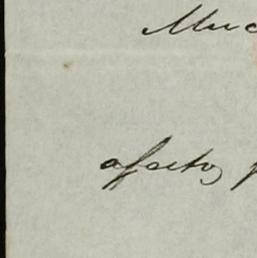 Muc
afecto,